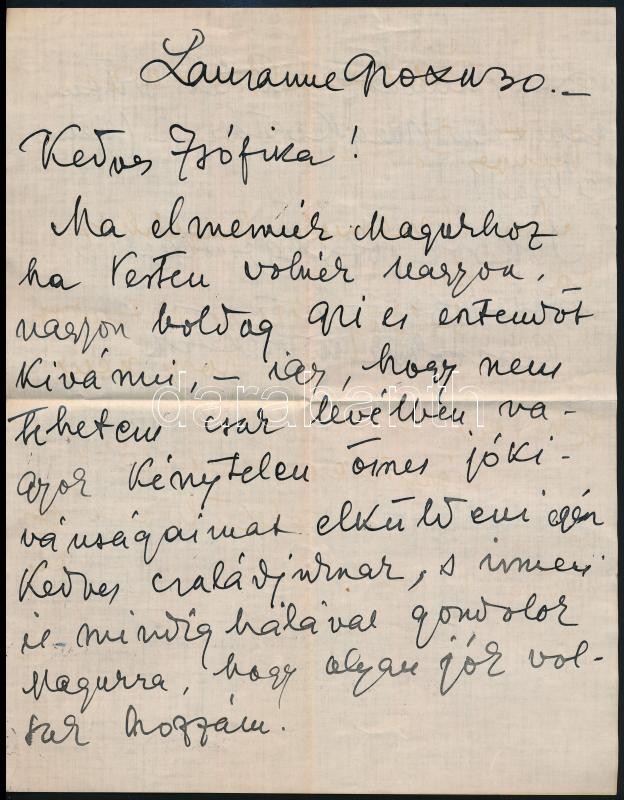 Lausanne
Kedves Zsófika!
Ma elmennék Magukhoz
ha Pesten volnék nagyon,
nagyon boldog új esztendőt
kívánni, – így, hogy nem
tehetem csak levélben va-
gyok kénytelen összes jókí-
vánságaimat elküldeni egész
kedves családjuknak, s innen
is mindíg hálával gondolok
Magukra, hogy olyan jók vol-
tak hozzám.
darabanth